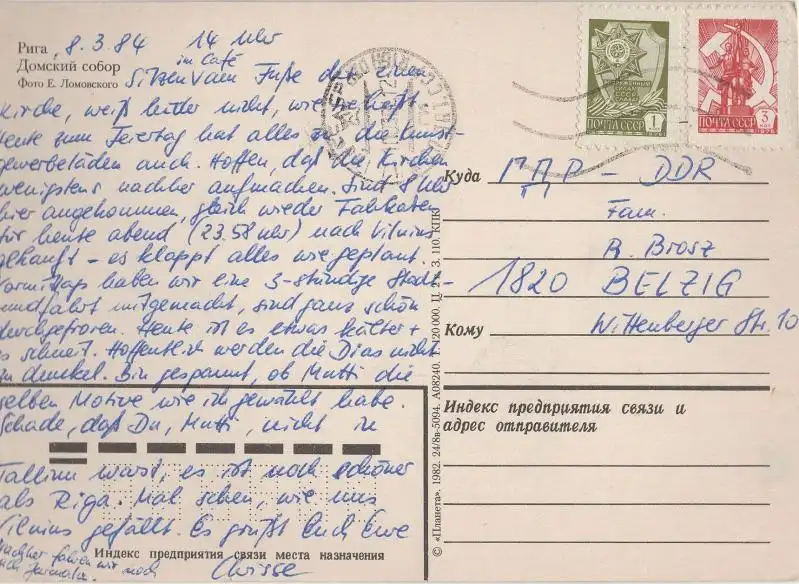 Рига,
Домский собор
Фото Е. Ломовского
8.3.84 14 Uhr
in Café
Sitzen vam Fuße der einen
Kirche, weiß leider nicht, wie sie heißt
Heute zum Feiertag hat alles zu, die Kunst-
gewerbeläden auch. Hoffen, daß die Kirchen
wenigstens nachher aufmachen. Sind 8 Uhr
hier angekommen, gleich wieder Fahrkarten
für heute abend (23.58 Uhr) nach Vilnius
gekauft – es klappt alles wie geplant.
Vormittags haben wir eine 3-stündige Stadt-
rundfahrt mitgemacht, sind ganz schön
durchgefroren. Heute ist es etwas kälter +
es schneit. Hoffentlich werden die Dias nicht
zu dunkel. Bin gespannt, ob Mutti die
selben Motive wie ich gewählt habe.
Schade, daß Du, Mutti, nicht in
Tallinn warst, es ist noch schöner
als Riga. Mal sehen, wie uns
Vilnius gefällt. Es grüßt Euch Eure
Nachher fahren wir noch
nach Jurmala.
Индекс предприятия связи места назначения
ПОЧТА СССР 1
ПОЧТА СССР 3
Куда
ГДР – DDR
Fam.
R. Brosz
1820 BELZIG
Кому
Wittenberger Str. 10
Индекс предприятия связи и
адрес отправителя
© «Планета», 1982. 24/8в-5094. А08240. Т. 120 000. Ц. З. 110. КПК